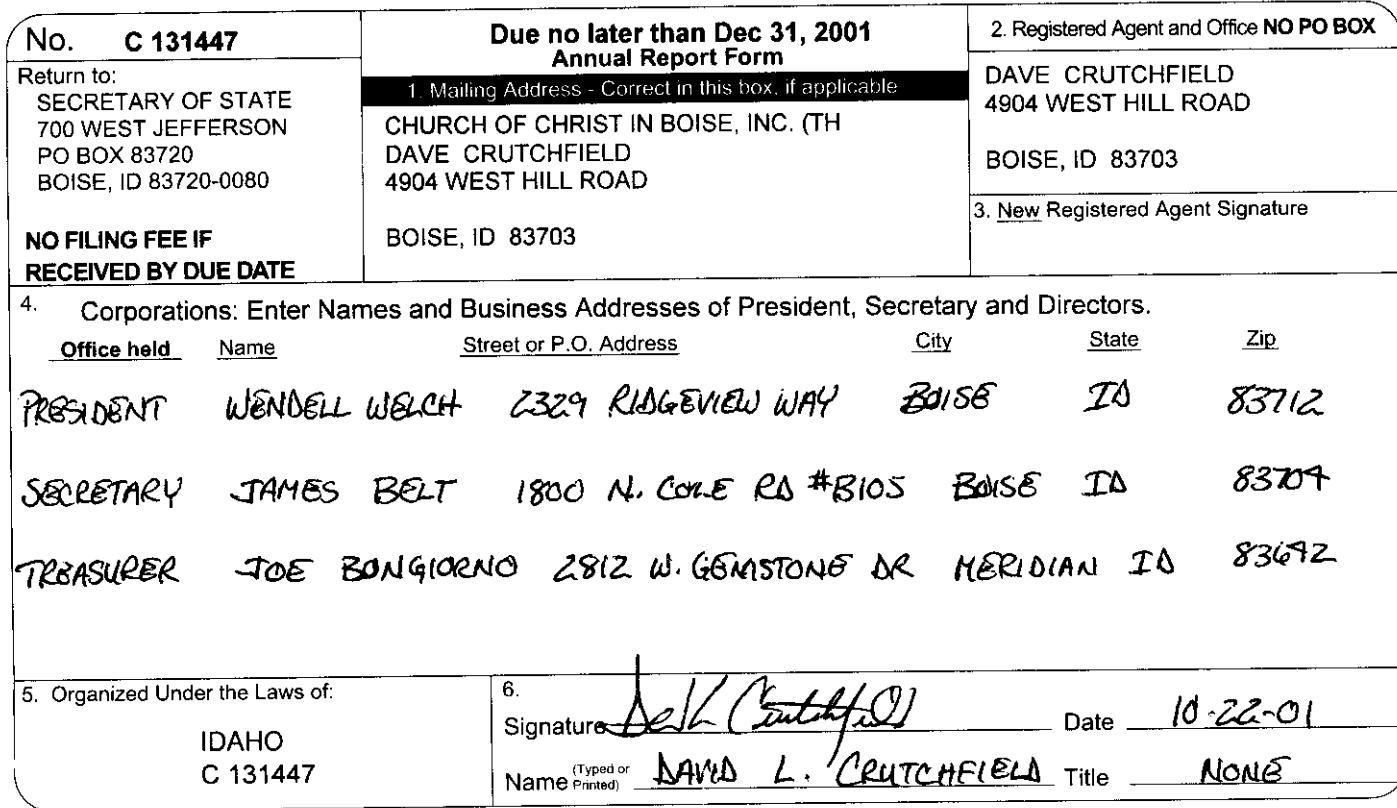 No. C 131447
Return to:
SECRETARY OF STATE
700 WEST JEFFERSON
PO BOX 83720
BOISE, ID 83720-0080
NO FILING FEE IF
RECEIVED BY DUE DATE
Due no later than Dec 31, 2001
Annual Report Form
1. Mailing Address - Correct in this box, if applicable
CHURCH OF CHRIST IN BOISE, INC. (TH
DAVE CRUTCHFIELD
4904 WEST HILL ROAD
BOISE, ID 83703
2. Registered Agent and Office NO PO BOX
DAVE CRUTCHFIELD
4904 WEST HILL ROAD
BOISE, ID 83703
3. New Registered Agent Signature
4. Corporations: Enter Names and Business Addresses of President, Secretary and Directors.
Office held Name Street or P.O. Address City State Zip
PRESIDENT WENDELL WELCH 2329 RIDGEVIEW WAY BOISE ID 83712
SECRETARY JAMES BELT 1800 N. COLE RD #B105 BOISE ID 83704
TREASURER JOE BONGIORNO 2812 W. GEMSTONE DR MERIDIAN ID 83642
5. Organized Under the Laws of:
IDAHO
C 131447
6.
Signature Crutchfield Date 10-22-01
Name (Typed or Printed) DAVID L. CRUTCHFIELD Title NONE